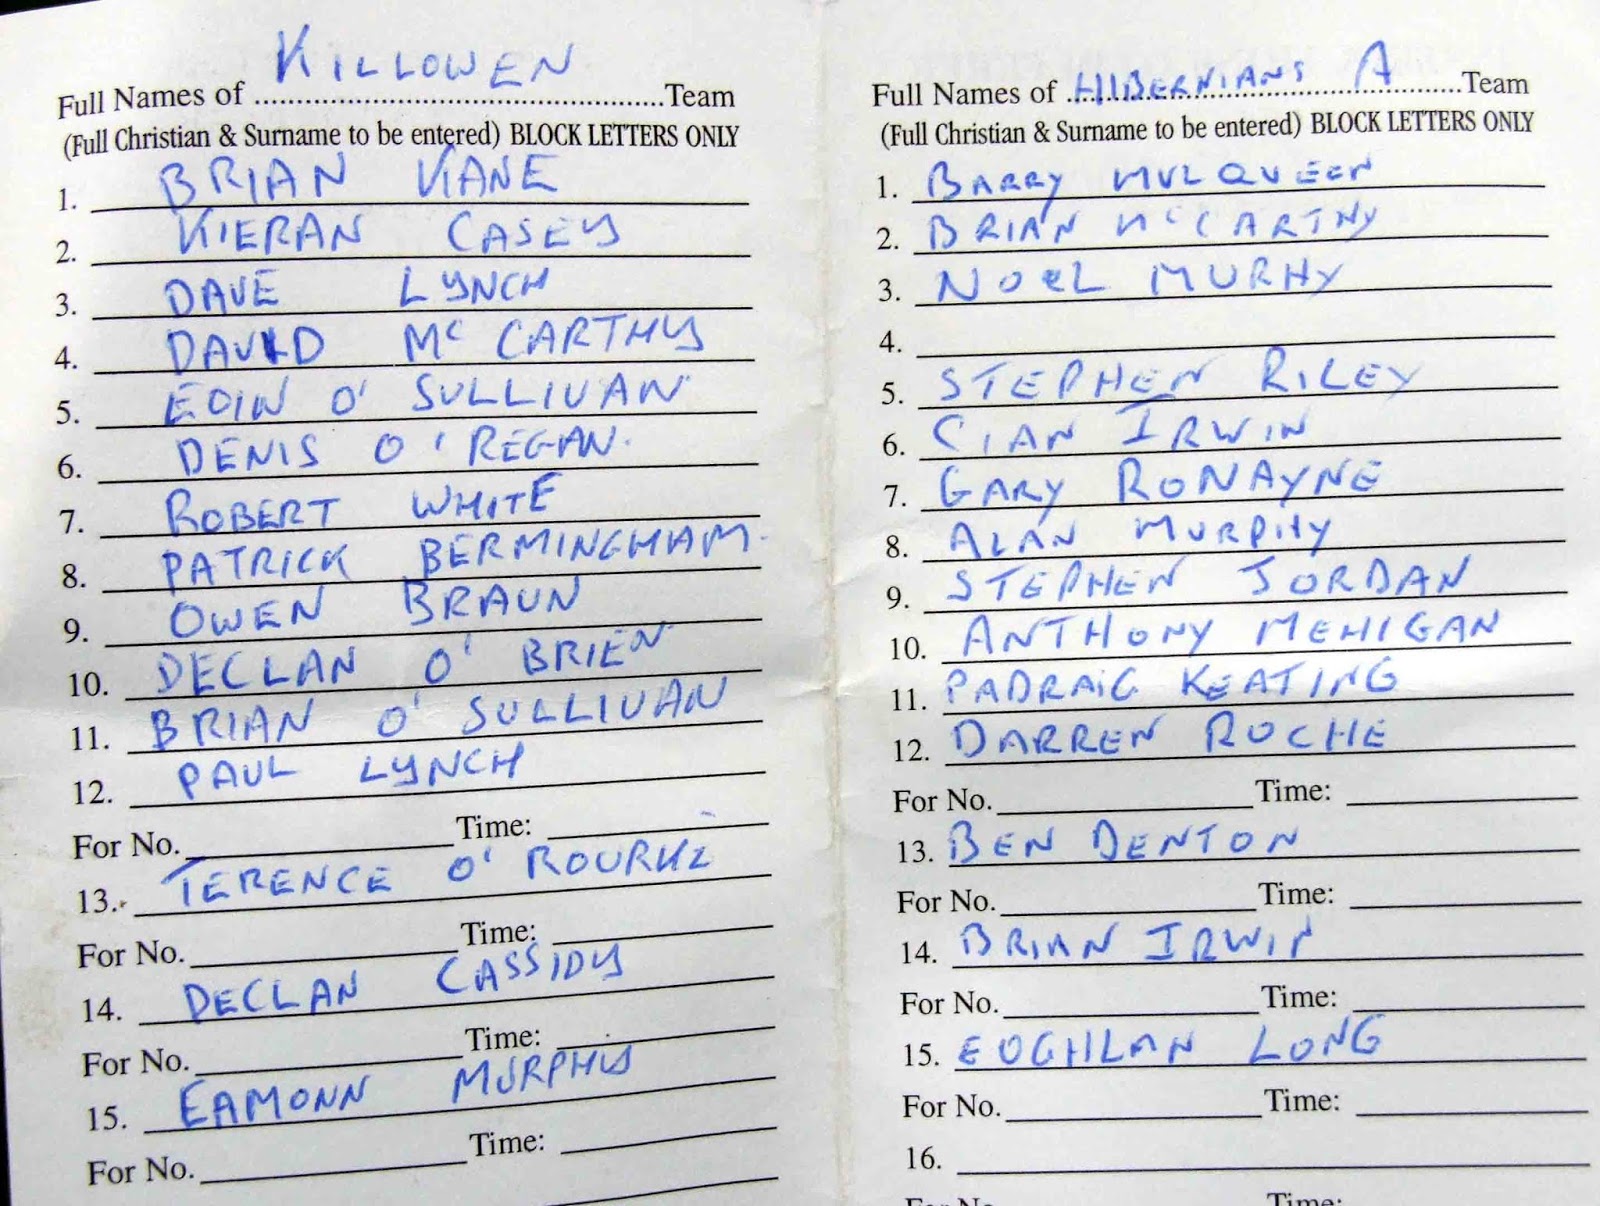 Full Names of KILLOWEN Team
(Full Christian & Surname to be entered) BLOCK LETTERS ONLY
1. BRIAN KANE
2. KIERAN CASEY
3. DAVE LYNCH
4. DAVID Mc CARTHY
5. EOIN O' SULLIVAN
6. DENIS O' REGAN.
7. ROBERT WHITE
8. PATRICK BERMINGHAM.
9. OWEN BRAUN
10. DECLAN O' BRIEN
11. BRIAN O' SULLIVAN
12. PAUL LYNCH
For No. Time:
13. TERENCE O' ROURKE
For No. Time:
14. DECLAN CASSIDY
For No. Time:
15. EAMONN MURPHY
For No. Time:
Full Names of HIBERNIANS A Team
(Full Christian & Surname to be entered) BLOCK LETTERS ONLY
1. BARRY MULQUEEN
2. BRIAN McCARTHY
3. NOEL MURHY
4.
5. STEPHEN RILEY
6. CIAN IRWIN
7. GARY RONAYNE
8. ALAN MURPHY
9. STEPHEN JORDAN
10. ANTHONY MEHIGAN
11. PADRAIG KEATING
12. DARREN ROCHE
For No. Time:
13. BEN DENTON
For No. Time:
14. BRIAN IRWIN
For No. Time:
15. EOGHLAN LONG
For No. Time:
16.
For No. Time: